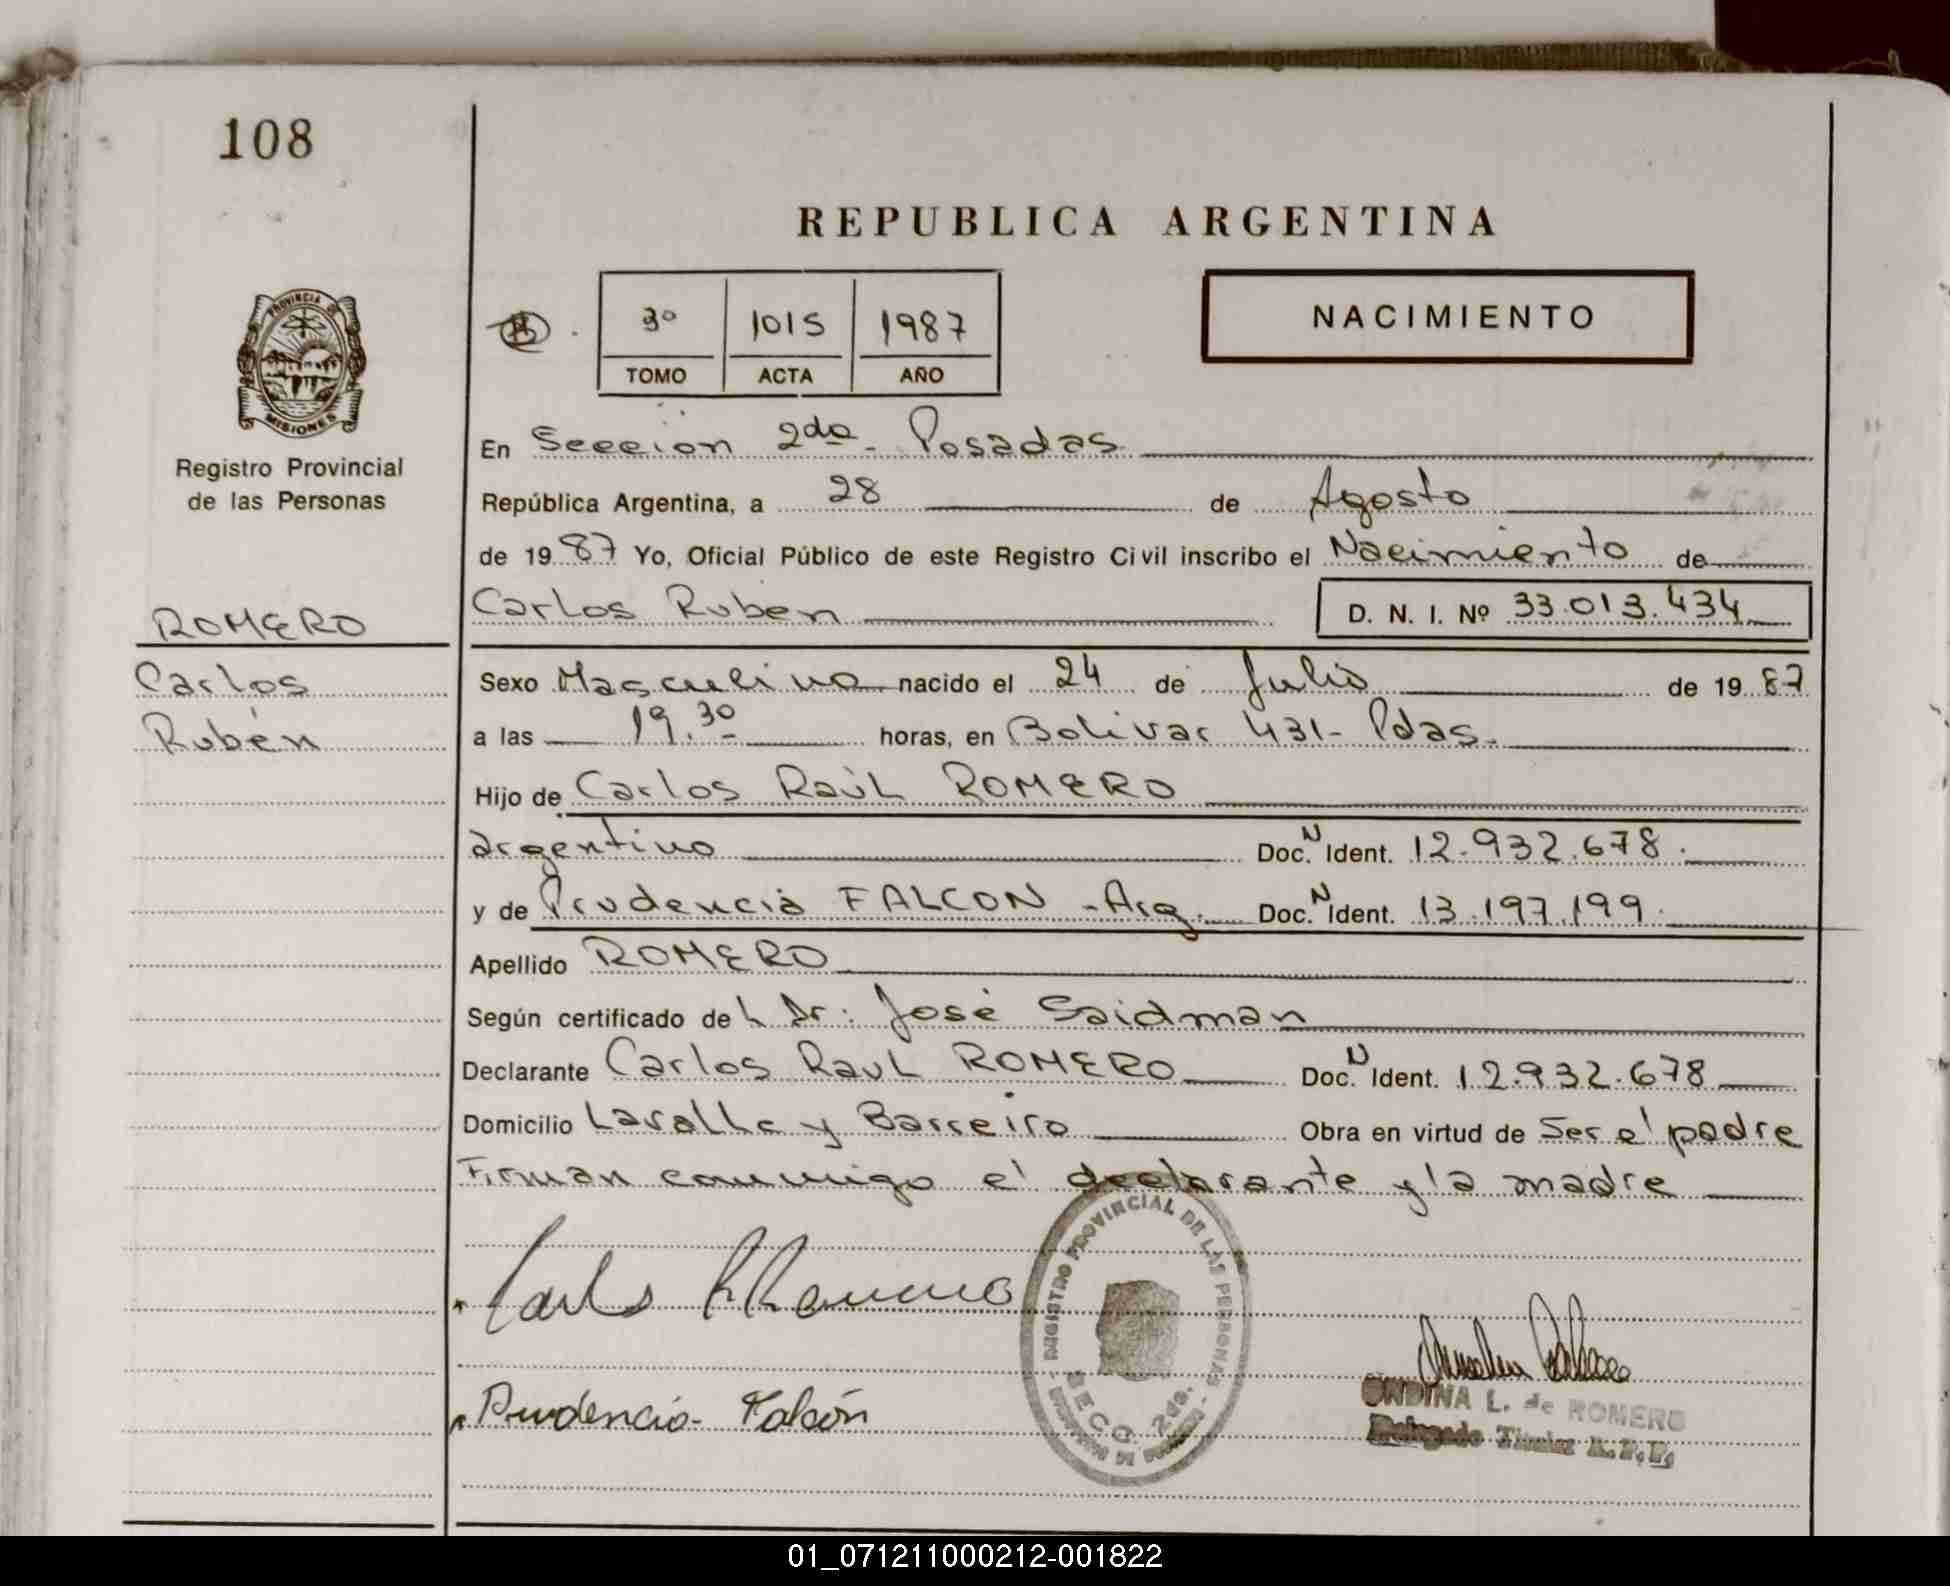 108
REPUBLICA ARGENTINA
3º 1015 1987
TOMO ACTA AÑO
NACIMIENTO
PROVINCIA DE
MISIONES
Registro Provincial
de las Personas
ROMERO
Carlos
Rubén
En Seccion 2da - Posadas
República Argentina, a 28 de Agosto
de 1987 Yo, Oficial Público de este Registro Civil inscribo el Nacimiento de
Carlos Ruben D. N. I. Nº 33.013.434
Sexo Masculino nacido el 24 de Julio de 1987
a las 19.30 horas, en Bolivar 431- Pdas.
Hijo de Carlos Raúl ROMERO
argentino Doc. N Ident. 12.932.678.
y de Prudencia FALCON - Arg. Doc. N Ident. 13.197.199.
Apellido ROMERO
Según certificado del Dr: José Saidman
Declarante Carlos Raul ROMERO Doc. N Ident. 12.932.678
Domicilio Lavalle y Barreiro Obra en virtud de Ser el padre
Firman conmigo el declarante y la madre
Carlos R Romero
Prudencia Falcón
REGISTRO PROVINCIAL DE LAS PERSONAS
SECC. 2da.
ONDINA L. de ROMERO
Delegado Titular R.P.P.
01_071211000212-001822